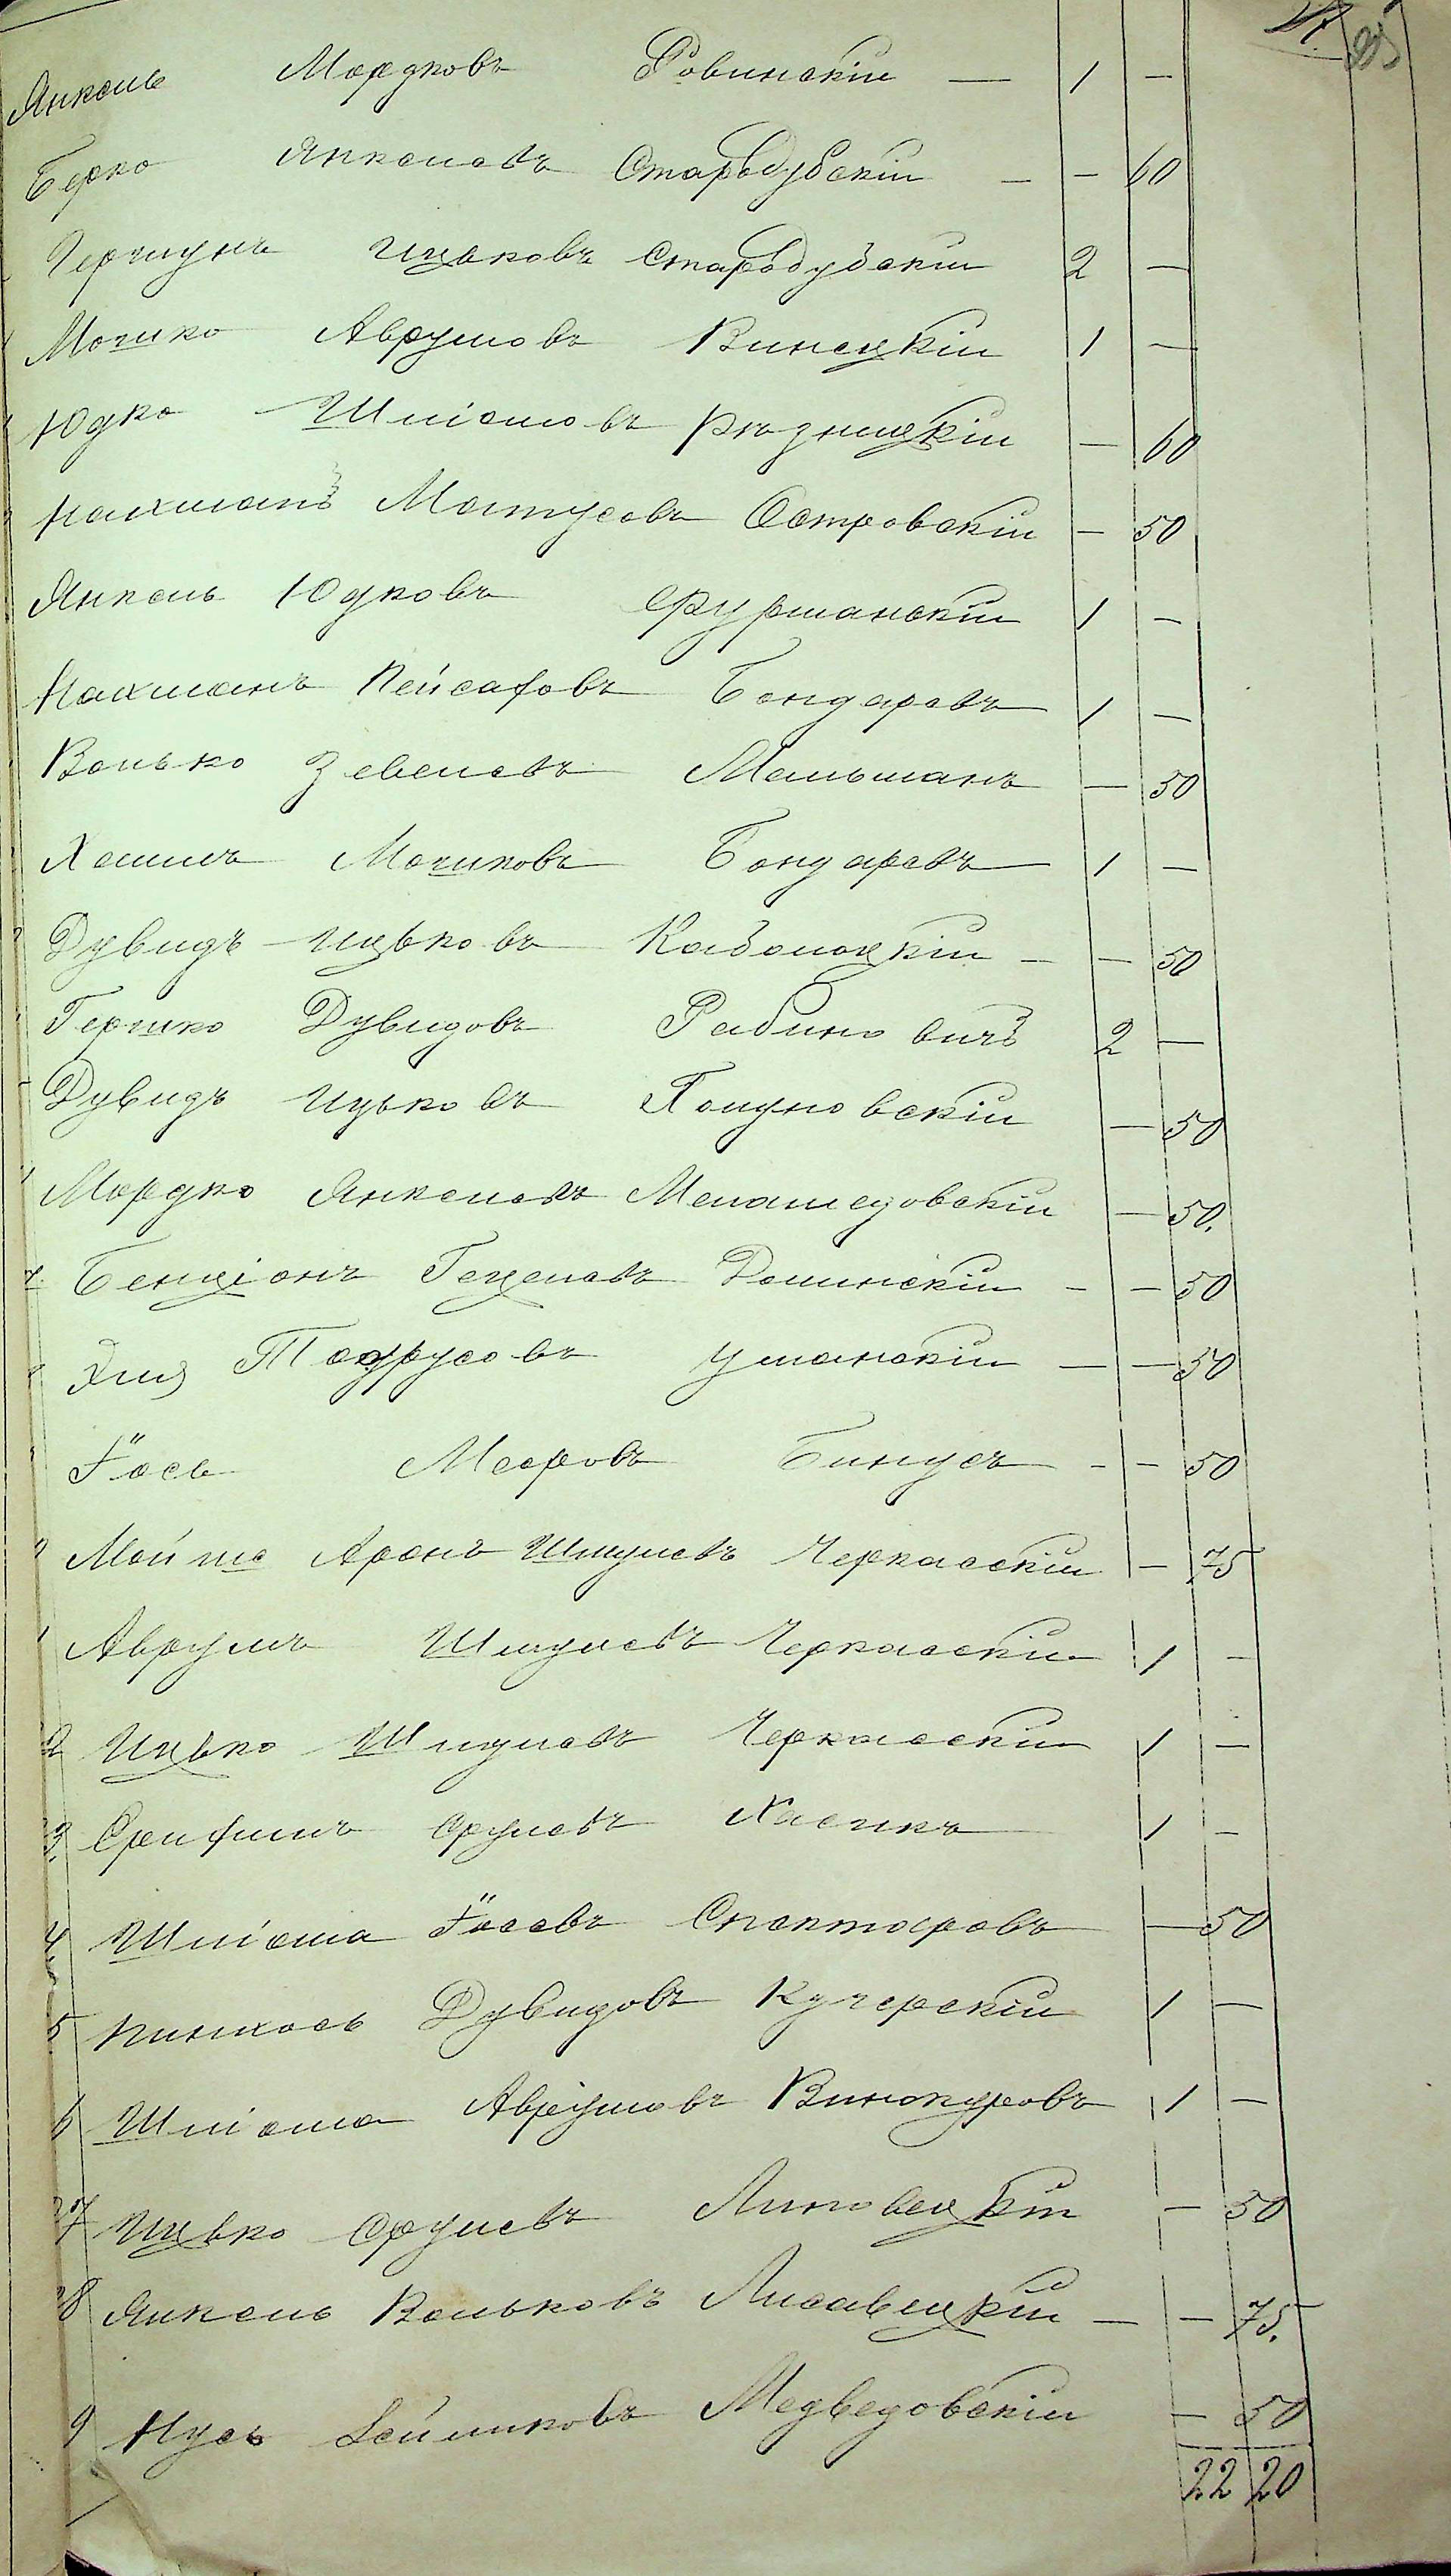 Янкель Мордковъ Ровинскій — 1 —
Берко Янкелевъ Стародубскій — — 60
Гершунъ Ицьковъ Стародубскій 2 —
Мошко Аврумовъ Винецкій 1 —
Юдко Шліомовъ Рѣзницкій — 60
Нахманъ Матусовъ Островскій — 50
Янкель Юдковъ Фурманскій 1 —
Нахманъ Пейсаховъ Бондаревъ 1 —
Волько Зевелевъ Мельманъ — 50
Хаимъ Мошковъ Бондаревъ 1 —
Дувидъ Ицьковъ Кабалоцкій — — 50
Гершко Дувидовъ Рабиновичъ 2 —
Дувидъ Ицьковъ Голуновскій — 50
Мордко Янкелевъ Менамедовскій — 50.
Бенціонъ Гецелевъ Долинскій — — 50
Эля Тодрусовъ Уманскій — — 50
Іось Мееровъ Бинусъ — — 50
Мойше Аронъ Шмулевъ Черкасскій — 75
Аврумъ Шмулевъ Черкасскій 1 —
2 Ицько Шмулевъ Черкасскій 1 —
3. Сроифимъ Срулевъ Хасинъ 1 —
4. Шліома Іосевъ Спекторовъ — 50
5 Пинхосъ Дувидовъ Кучерскій 1 —
6 Шліома Аврумовъ Винокуровъ 1 —
27 Ицько Срулевъ Липовецкій — 50
28 Янкель Вольковъ Лисавецкій — — 75.
9 Нусь Лейзиковъ Медведовскій — 50
22 20